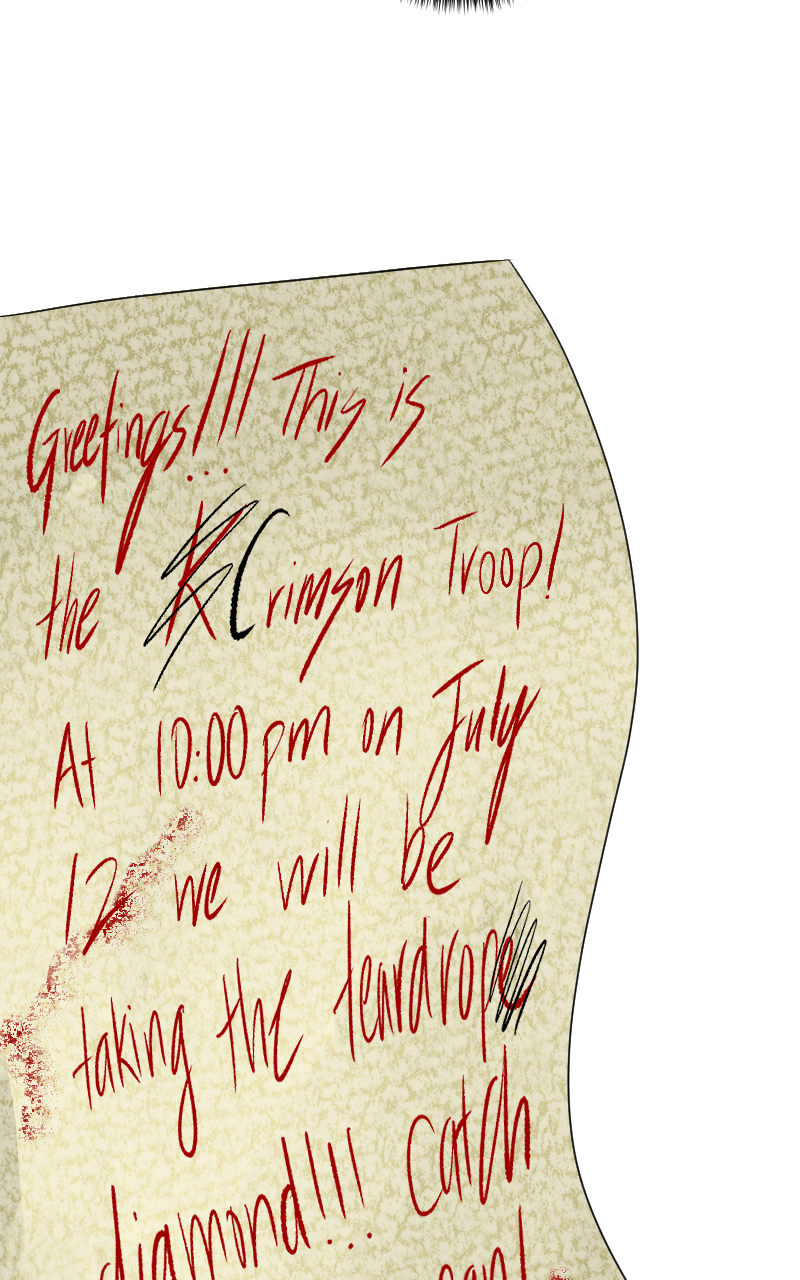 Greetings!!! This is
the Crimson Troop!
At 10:00pm on July
12 we will be
taking the teardrop
diamond!!! Catch